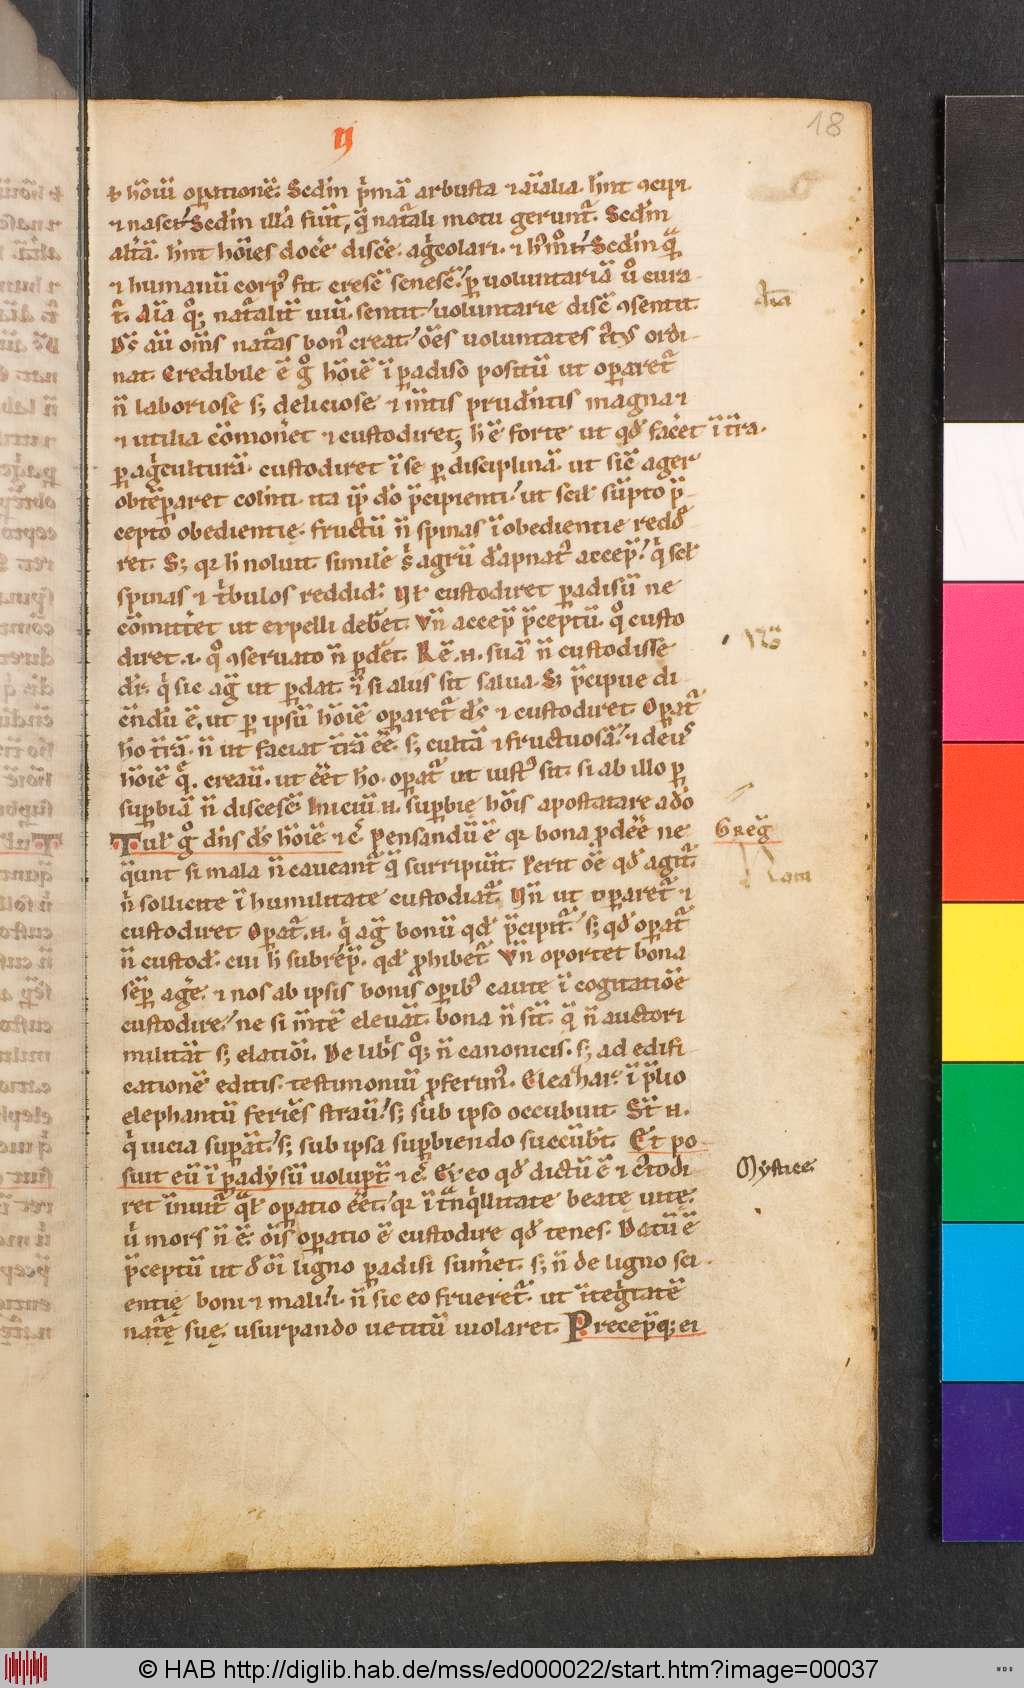 18
II
⁊ hōiū oꝑationē. Sedm p̄mā arbusta ⁊ aīalia hn̄t ꝯcipi
⁊ nasci. Sedm illā fiūt, q̄ nat᷑ali motu gerunt᷑. Sedm
alt̄ā hn̄t hōīes docē discē. ag̓colari. ⁊
⁊ humanū corp᷒ fit cresc̄ senesc̄. ꝑ uoluntariā ů cura
t᷑. Aīa q̊; nat᷑alit̄ uiū sentit uoluntarie disc̄ ꝯsentit.
Ds̄ aū om̄s nat᷑as bon᷒ creat. oēs uoluntates ordi
nat. Credibile ē g̊ hōiē ī ꝑadiso positū ut oꝑaret᷑
n̄ laboriose s; deliciose ⁊ m̄tis prudn̄tis magna
⁊ utilia cōmonēt ⁊ custodiret, h̄ ē forte ut qd̄ facēt ī t̄ra.
ꝑ ag̓culturā. custodiret ī se ꝑ disciplinā. ut sic̄ ager
obtēꝑaret colenti. ita ip̄ dō p̄cipienti. ut scil sūpto p̄
cepto obedientię. fructū n̄ spinas īobedientie redd̄
ret. S; qr h̄ noluit. simile s̄ agrū
spinas ⁊ t̓bulos reddid̄. Ul̄ custodiret ꝑadisū ne
cōmitt̄et ut expelli deb̄et. Vn̄ accep̄ p̄ceptū. q̊ custo
diret .i. q̊ ꝯseruato n̄ ꝑdēt. Rē .n. suā n̄ custodisse
dr̄. q̓ sic ag̓ ut ꝑdat. ⁊ si alus sit salua. S; p̄cipue di
cēndū ē, ut ꝑ ipsū hōiē oꝑaret᷑ ds̄ ⁊ custodiret. Oꝑat᷑
hō t̄rā. n̄ ut faciat t̄rā ēē. s; cultā ⁊ fructuosā. ⁊ de᷒
hōiē q̄. creau. ut ēēt hō. oꝑat᷑ ut iust᷒ sit. si ab illo ꝑ
suꝑbiā n̄ discess̄. Iniciū .n. suꝑbię hōīs apostatare a dō
Tul̄ g̊ dn̄s ds̄ hōiē ⁊ c̄. Pensandū ē qr bona ꝓdēē ne
q̄unt si mala n̄ caueant᷑ q̄ surripiūt. Perit oē qd̄ agit᷑.
n̓ sollicite ī humilitate custodiat᷑. Un̄ ut oꝑaret᷑ ⁊
custodiret. Oꝑat᷑ .n. q̓ ag̓ bonū qd̄ p̄cipit᷑. s; qd̄ oꝑat᷑
n̄ custod̄. cui h̄ subrep̄. qd̄ ꝓhibet᷑. Vn̄ oportet bona
sēꝑ agē. ⁊ nos ab ipsis bonis oꝑib᷒ caute ī cogitatiōe
custodire. ne si m̄tē eleuāt. bona n̄ sīt. q̄ n̄ auctori
militāt s; elatiōi. De lib̄s q̊; n̄ canonicis. s; ad edifi
cationē editis. testimoniū ꝓferim᷒. Eleazhar ī p̄lio
elephantū feriēs strau. s; sub ipso occubuit. St̄ .n.
q̓ uicia suꝑāt. s; sub ipsa suꝑbiendo succūbt. Et po
suit eū ī ꝑadysū uolupt̄ ⁊ c̄. Ex eo qd̄ dictū ē ⁊ c̄todi
ret īnuit᷑ q̄l̄ oꝑatio ēēt. qr ī t᷑nq̓llitate beatę uitę.
u̓ mors n̄ ē. ōīs oꝑatio ē custodire qd̄ tenes. Datū ē
p̄ceptū ut d̄ ōi ligno ꝑadisi sum̄et. s; n̄ de ligno sci
entię boni ⁊ mali. .i. n̄ sic eo frueret᷑. ut īteg̓tatē
nat᷑ę suę. usurpando uetitū uiolaret. Precepq; ei
Greg̓
Mystice.
© HAB http://diglib.hab.de/mss/ed000022/start.htm?image=00037